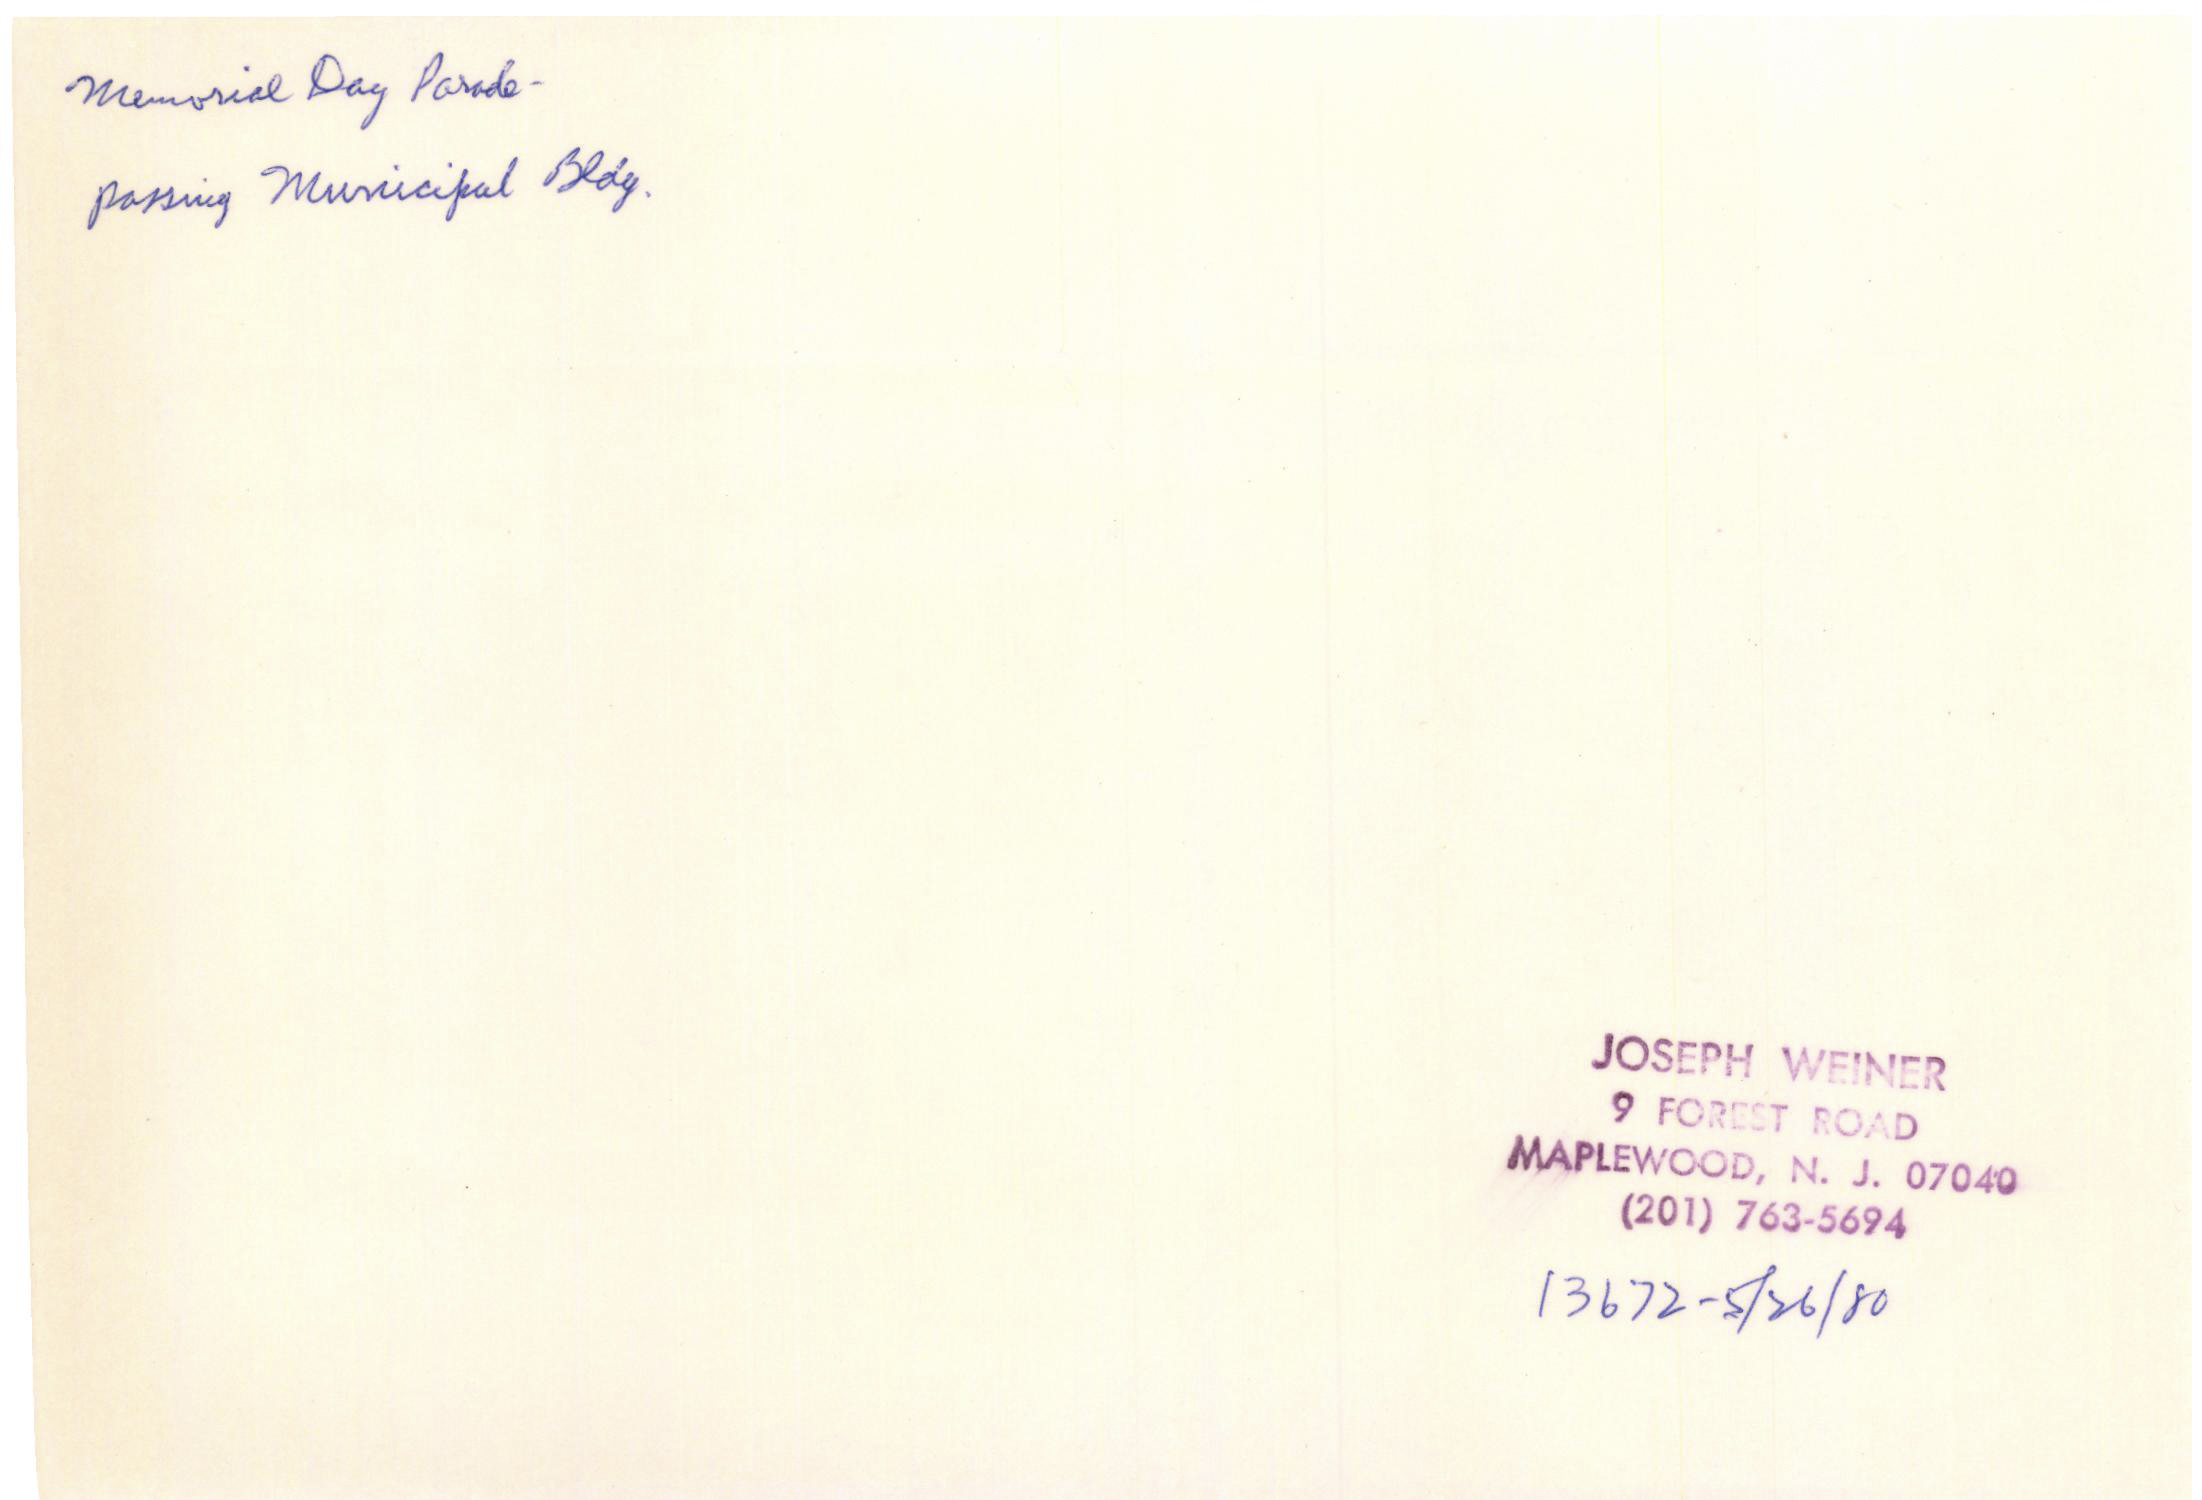 Memorial Day Parade-
passing Municipal Bldg.
JOSEPH WEINER
9 FOREST ROAD
MAPLEWOOD, N. J. 07040
(201) 763-5694
13672-5/26/80